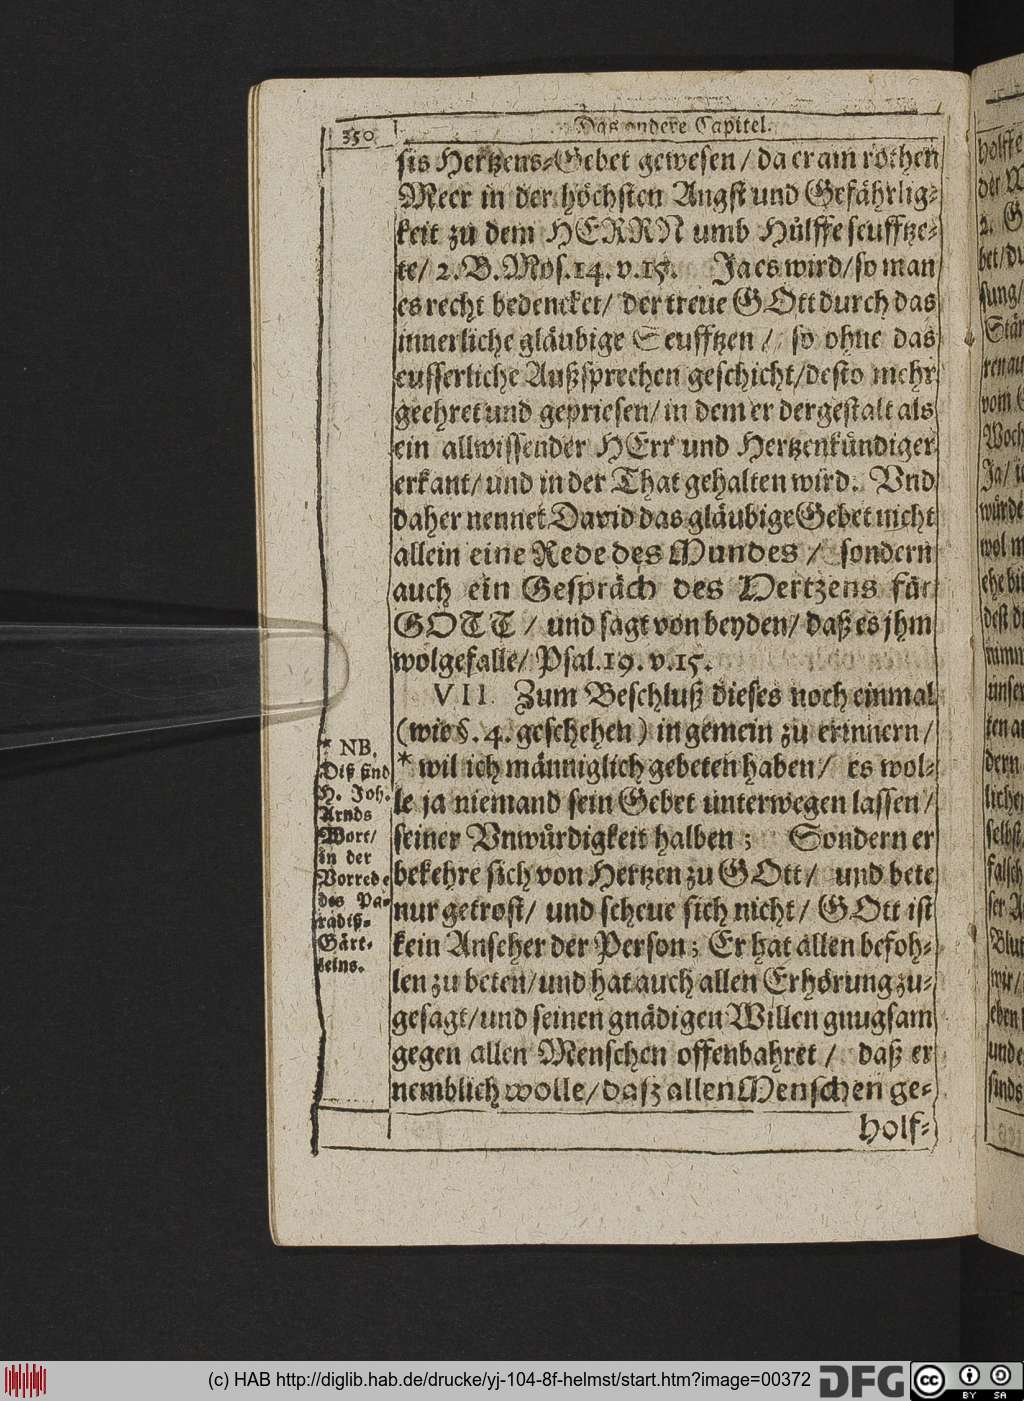 350
Das andere Capitel.
sis Hertzens-Gebet gewesen / da er am rothen
Meer in der höchsten Angst und Gefährlig-
keit zu dem HERRN umb Hülffe seufftze-
te / 2. B. Mos. 14. v. 15. Ja es wird / so man
es recht bedencket / der treue GOtt durch das
innerliche gläubige Seufftzen / so ohne das
eusserliche Außsprechen geschicht / desto mehr
geehret und gepriesen / in dem er dergestalt als
ein allwissender HErr und Hertzenkündiger
erkant / und in der That gehalten wird. Vnd
daher nennet David das gläubige Gebet nicht
allein eine Rede des Mundes / sondern
auch ein Gespräch des Hertzens für
GOTT / und sagt von beyden / daß es jhm
wolgefalle / Psal. 19. v. 15.
VII. Zum Beschluß dieses noch einmal
(wie §. 4. geschehen) in gemein zu erinnern /
* wil ich männiglich gebeten haben / es wol-
le ja niemand sein Gebet unterwegen lassen /
seiner Vnwürdigkeit halben ; Sondern er
bekehre sich von Hertzen zu GOtt / und bete
nur getrost / und scheue sich nicht / GOtt ist
kein Anseher der Person ; Er hat allen befoh-
len zu beten / und hat auch allen Erhörung zu-
gesagt / und seinen gnädigen Willen gnugsam
gegen allen Menschen offenbahret / daß er
nemblich wolle / daß allen Menschen ge-
holf-
* NB.
Diß sind
H. Joh.
Arnds
Wort /
in der
Vorrede
des Pa-
radiß-
Gärt-
leins.
(c) HAB http://diglib.hab.de/drucke/yj-104-8f-helmst/start.htm?image=00372
DFG
cc
BY SA